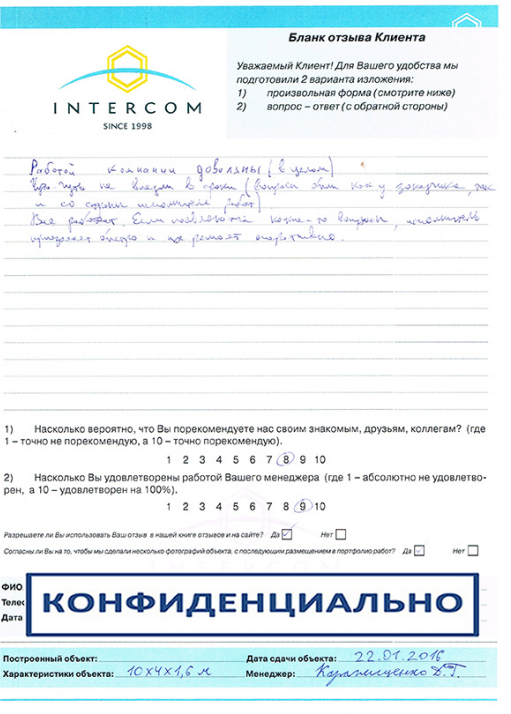 Бланк отзыва Клиента
Уважаемый Клиент! Для Вашего удобства мы
подготовили 2 варианта изложения:
1) произвольная форма (смотрите ниже)
2) вопрос – ответ (с обратной стороны)
INTERCOM
SINCE 1998
Работой компании довольны (в целом)
Чуть-чуть не влезли в сроки (вопросы были как у заказчика, так
и со стороны исполнителя работ)
Все работает. Если появляются какие-то вопросы, исполнитель
приезжает быстро и их решает оперативно.
1) Насколько вероятно, что Вы порекомендуете нас своим знакомым, друзьям, коллегам? (где
1 – точно не порекомендую, а 10 – точно порекомендую).
1 2 3 4 5 6 7 8 9 10
2) Насколько Вы удовлетворены работой Вашего менеджера (где 1 – абсолютно не удовлетво-
рен, а 10 – удовлетворен на 100%).
1 2 3 4 5 6 7 8 9 10
Разрешаете ли Вы использовать Ваш отзыв в нашей книге отзывов и на сайте? Да Нет
Согласны ли Вы на то, чтобы мы сделали несколько фотографий объекта, с последующим размещением в портфолио работ? Да Нет
INTERCOM
ФИО
Телеф
Дата
КОНФИДЕНЦИАЛЬНО
Построенный объект: Дата сдачи объекта: 22.01.2016
Характеристики объекта: 10х4х1,6 м Менеджер: Д.Г.